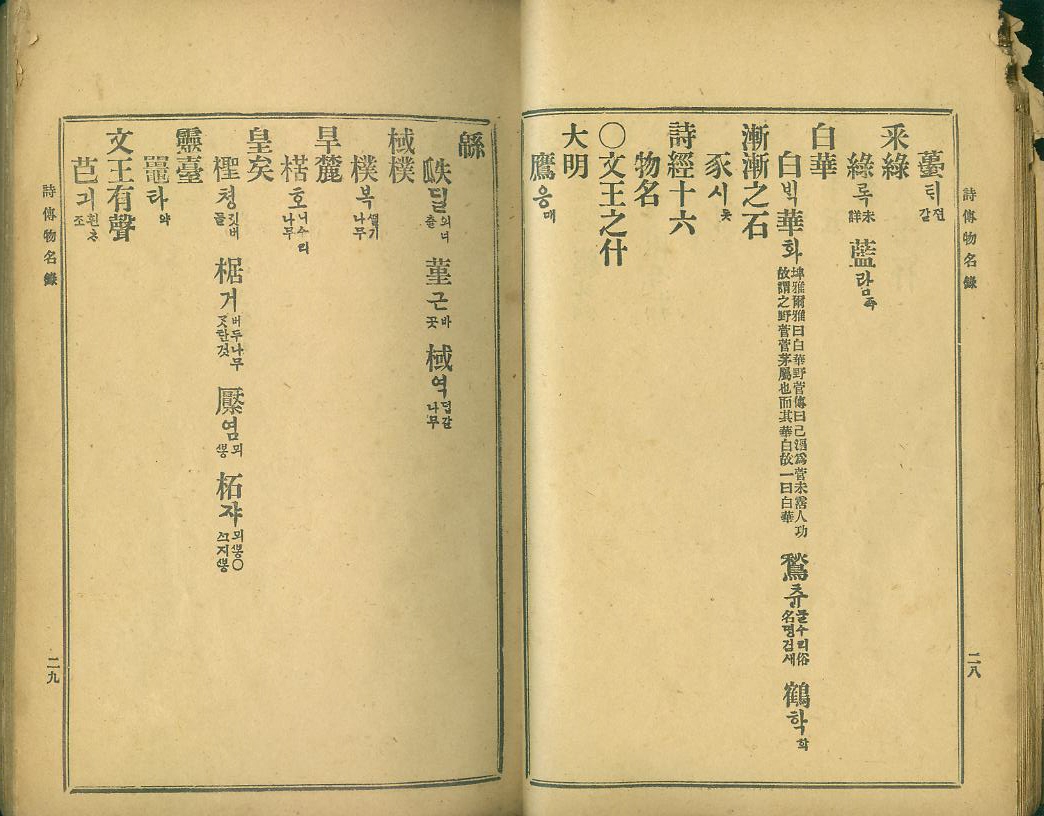 詩傳物名錄
二八
蠆틔 전갈
采綠
綠록 未詳 藍람 족
白華
白ᄇᆡᆨ華화 埤雅爾雅曰白華野菅傳曰己漚爲菅未漚人功故謂之野菅菅茅屬也而其華白故一曰白華 鶖츄 굴수리俗名명검새 鶴학 학
漸漸之石
豕시 돗
詩經十六
物名
○文王之什
大明
鷹응 매
緜
瓞딜 외너출 菫근 바곳 棫역 덥갈나무
棫樸
樸복 셜기나무
旱麓
楛호 너수리나무
皇矣
檉졍 깃버들 椐거 버두나무 檿염 뫼ᄲᅩᆼ 柘쟈 뫼ᄲᅩᆼ○
靈臺
鼉타 악
文王有聲
芑긔 흰차조
詩傳物名錄
二九